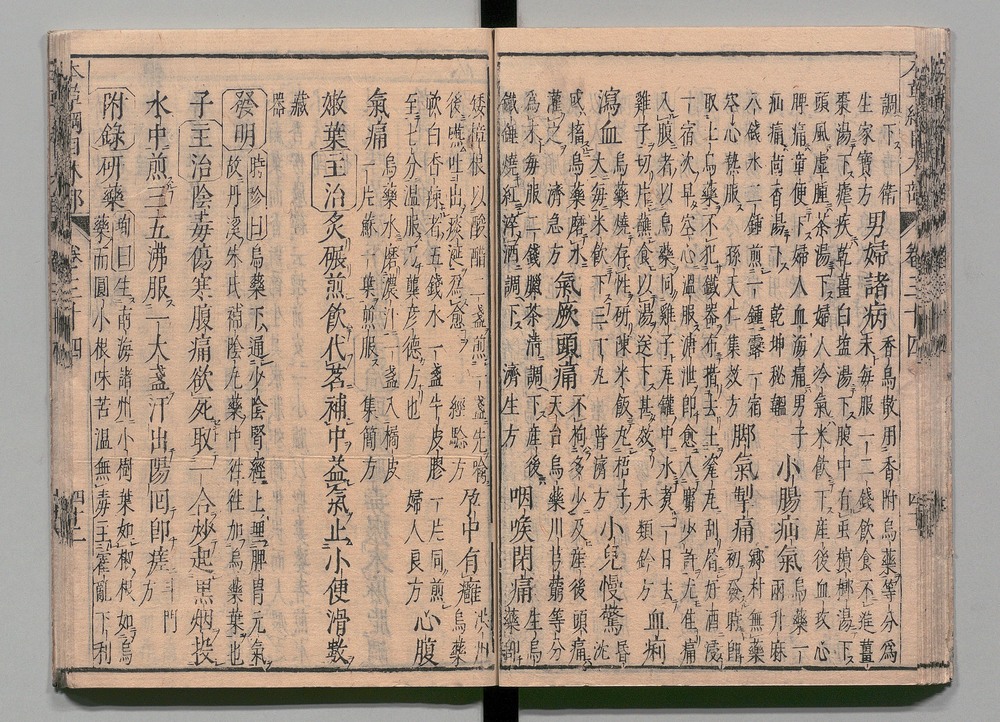 調下○衛
生家寶方
男婦諸病
香烏散用香附烏藥等分爲
末每服一二錢飲食不進薑
棗湯下瘧疾乾薑白盐湯下腹中有虫檳榔湯下
頭風虛腫茶湯下婦人冷氣米飲下產後血攻心
脾痛童便下婦人血海痛男子
疝痛茴香湯下 乾坤秘韞
小腸疝氣
烏藥一
兩升麻
八錢水二鍾煎一鍾露一宿
空心熱服 孫天仁集效方
脚氣掣痛
鄉村無藥
初發時卽
取土烏藥不犯鐵器布揩去土瓷瓦刮屑好酒浸
一宿次早空心溫服溏泄卽愈入麝少許尤佳痛
入腹者以烏藥同雞子瓦罐中水煮一日去
雞子切片蘸食以湯送下甚效 永類鈐方
血痢
瀉血
烏藥燒存性研陳米飯丸梧子
大每米飲下三十丸 普濟方
小兒慢驚
昏
沈
或搐烏藥磨水
灌之 濟急方
氣厥頭痛
不拘多少及產後頭痛
天台烏藥川芎藭等分
爲末每服二錢臘茶淸調下產後
鐵錘燒紅淬酒調下 濟生方
咽喉閉痛
生烏
藥卽
卷三十四
矮樟根以酸醋二盞煎一盞先噙
後嚥吐出痰涎爲愈 經驗方
孕中有癰
洪州
烏藥
軟白香辣者五錢水一盞牛皮膠一片同煎
至七分溫服乃龔彥德方也 婦人良方
心腹
氣痛
烏藥水磨濃汁一盞入橘皮
一片蘇一葉煎服 集簡方
嫩葉主治炙碾煎飲代茗補中益氣止小便滑數
藏
器
發明
時珍曰烏藥下通少陰腎經上理脾胃元氣
故丹溪朱氏補陰丸藥中往往加烏藥葉也
子主治陰毒傷寒腹痛欲死取一合炒起黑烟投
水中煎三五沸服一大盞汗出陽回卽瘥
斗門
方
附錄研藥
珣曰生南海諸州小樹葉如椒根如烏
藥而圓小根味苦溫無毒主霍亂下利
卷三十四